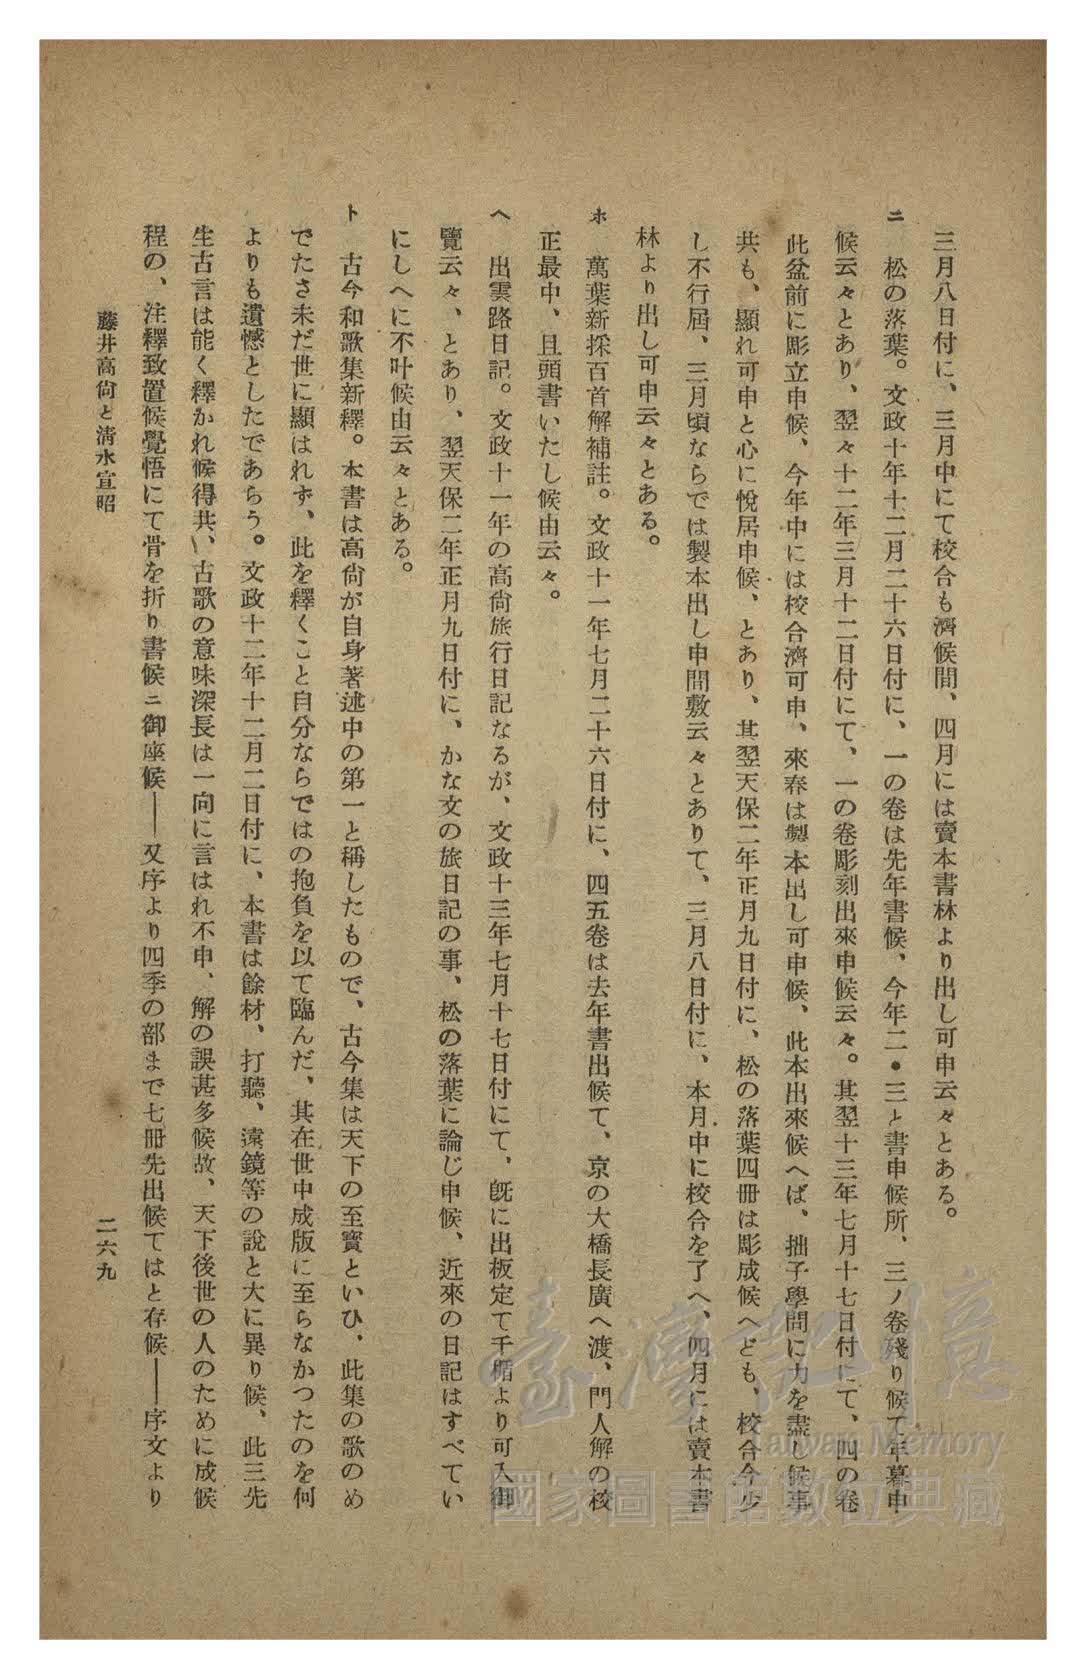 三月八日付に、三月中にて校合も濟候間、四月には賣本書林より出し可申云々とある。
ニ　松の落葉。文政十年十二月二十六日付に、一の卷は先年書候、今年二・三と書申候所、三ノ卷殘り候て年暮申
候云々とあり、翌々十二年三月十二日付にて、一の卷彫刻出來申候云々。其翌十三年七月十七日付にて、四の卷
此盆前に彫立申候、今年中には校合濟可申、來春は製本出し可申候、此本出來候へば、拙子學問に力を盡し候事
共も、顯れ可申と心に悅居申候、とあり、其翌天保二年正月九日付に、松の落葉四冊は彫成候へども、校合今少
し不行屆、三月頃ならでは製本出し申間敷云々とありて、三月八日付に、本月中に校合を了へ、四月には賣本書
林より出し可申云々とある。
ホ　萬葉新採百首解補註。文政十一年七月二十六日付に、四五卷は去年書出候て、京の大橋長廣へ渡、門人解の校
正最中、且頭書いたし候由云々。
ヘ　出雲路日記。文政十一年の高尙旅行日記なるが、文政十三年七月十七日付にて、旣に出板定て千楯より可入御
覽云々、とあり、翌天保二年正月九日付に、かな文の旅日記の事、松の落葉に論じ申候、近來の日記はすべてい
にしへに不叶候由云々とある。
ト　古今和歌集新釋。本書は高尙が自身著述中の第一と稱したもので、古今集は天下の至寶といひ、此集の歌のめ
でたさ未だ世に顯はれず、此を釋くこと自分ならではの抱負を以て臨んだ、其在世中成版に至らなかつたのを何
よりも遺憾としたであらう。文政十二年十二月二日付に、本書は餘材、打聽、遠鏡等の說と大に異り候、此三先
生古言は能く釋かれ候得共、古歌の意味深長は一向に言はれ不申、解の誤甚多候故、天下後世の人のために成候
程の、注釋致置候覺悟にて骨を折り書候ニ御座候――又序より四季の部まで七冊先出候てはと存候――序文より
藤井高尙と淸水宣昭
二六九
臺灣記憶
Taiwan Memory
國家圖書館數位典藏